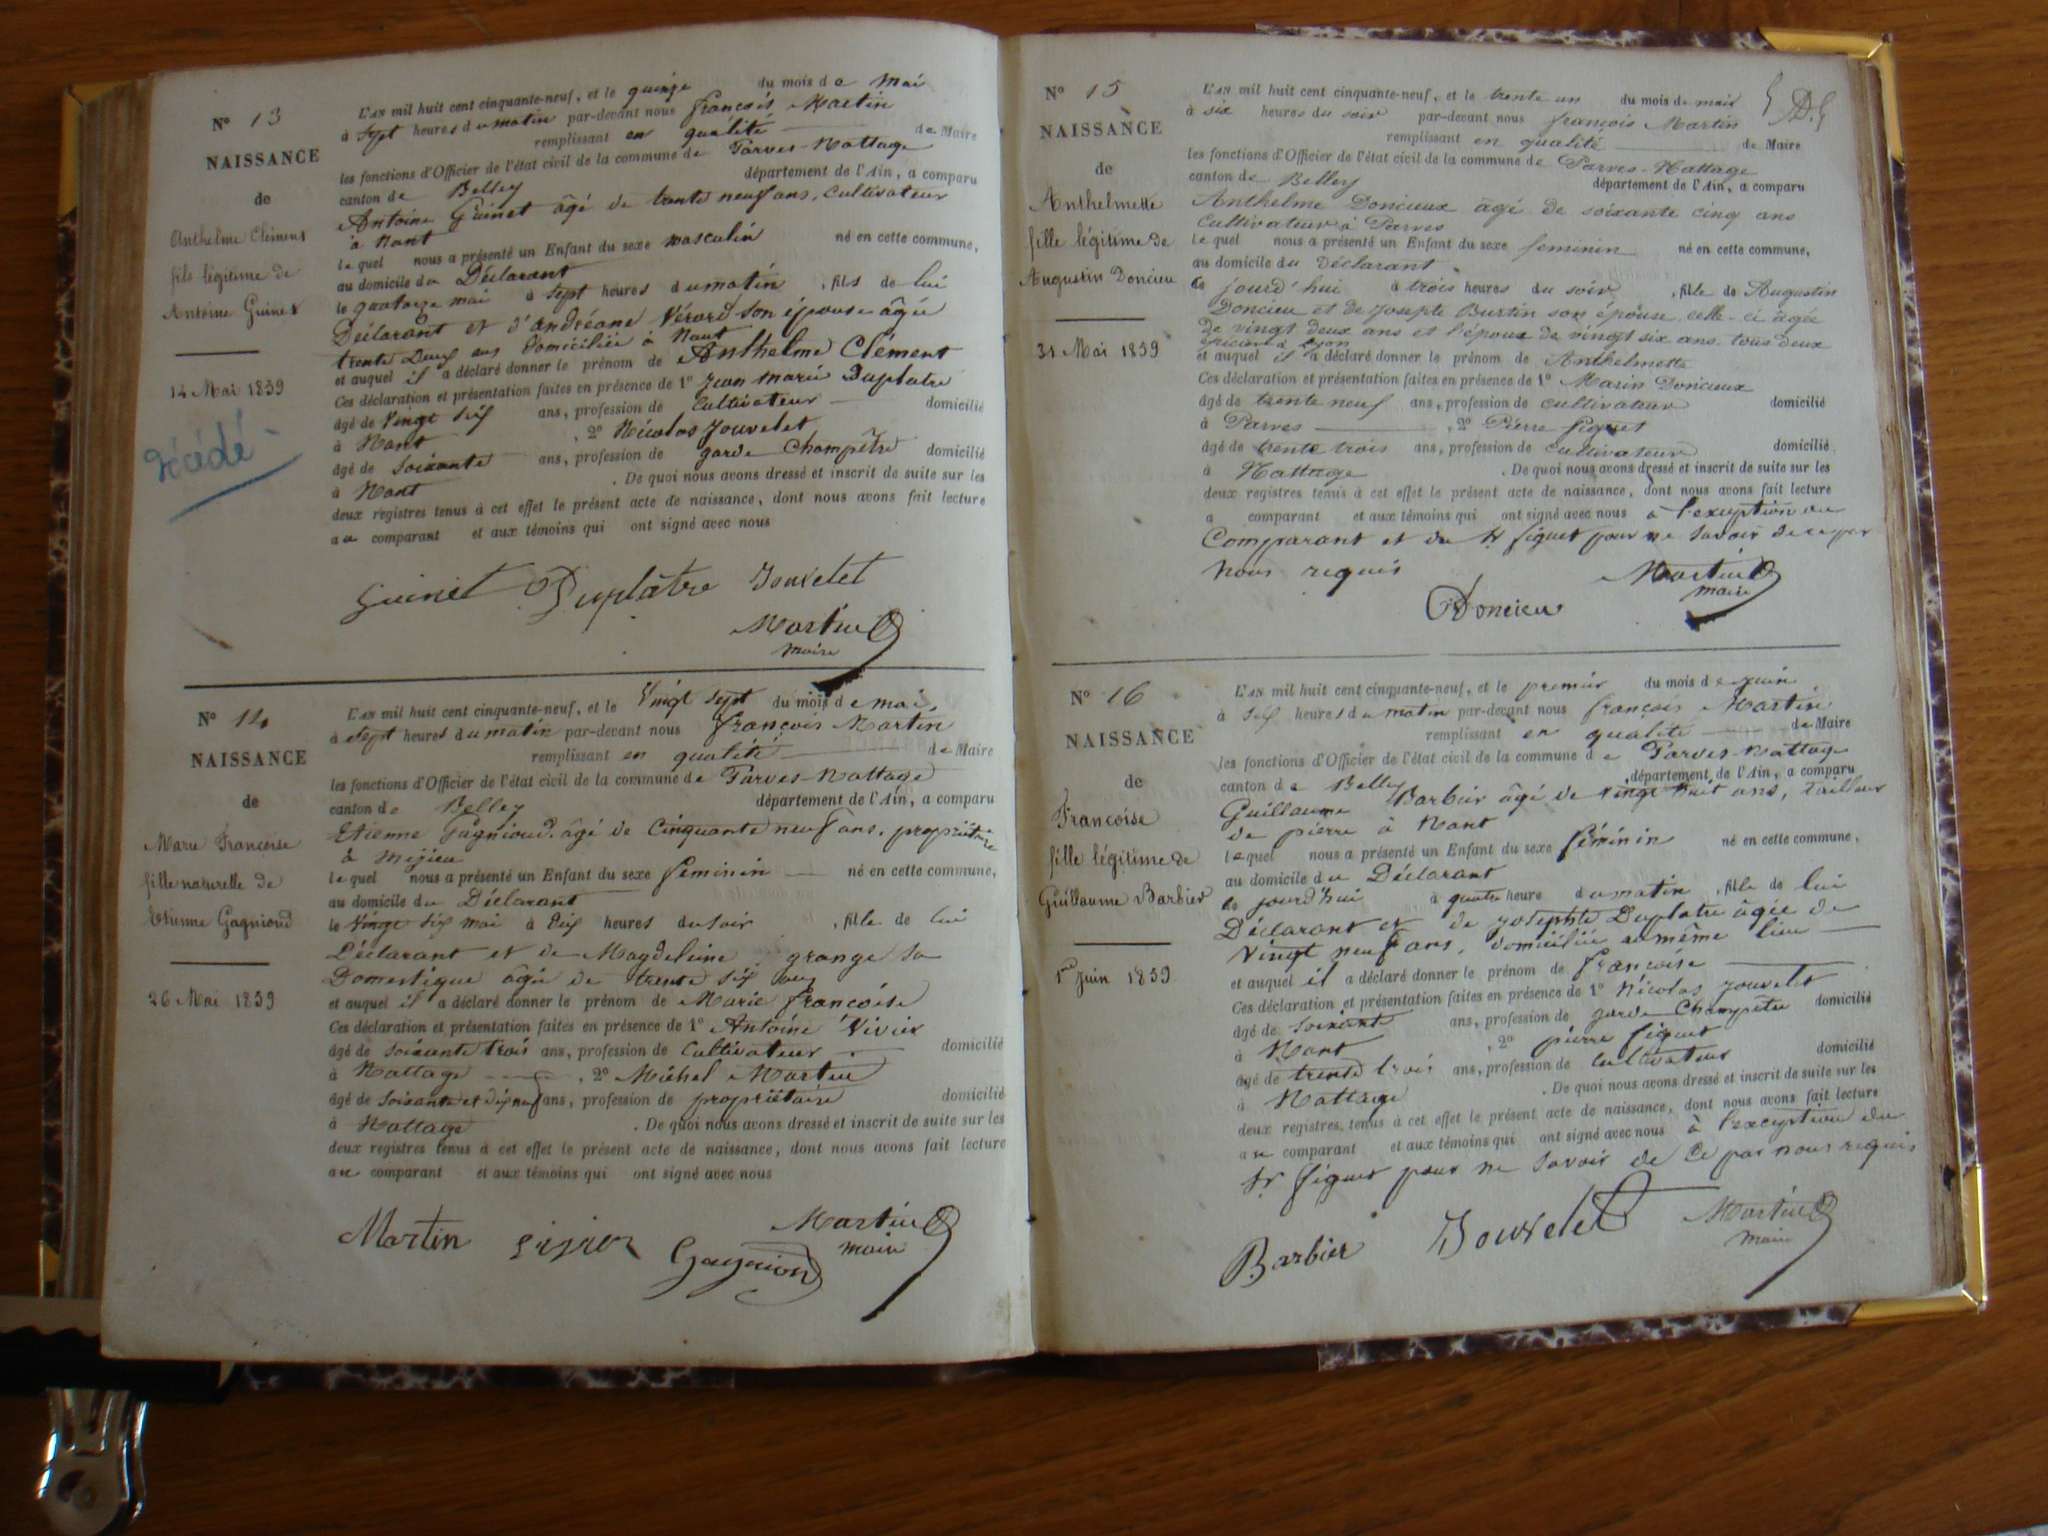 N° 13
NAISSANCE
de
Anthelme Clément
fils légitime de
Antoine Guinet
14 Mai 1859
Décédé
L'AN mil huit cent cinquante-neuf, et le quinze du mois de Mai
à sept heures du matin par-devant nous françois Martin
remplissant en qualité de Maire
les fonctions d'Officier de l'état civil de la commune de Parves-Nattage
canton de Belley département de l'Ain, a comparu
Antoine Guinet âgé de trente neuf ans, Cultivateur
à Nant
lequel nous a présenté un Enfant du sexe masculin né en cette commune,
au domicile du Déclarant
le quatorze mai à sept heures du matin, fils de lui
Déclarant et d'andréane Vérard son épouse âgée
trente Deux ans Domiciliée à Nant
et auquel il a déclaré donner le prénom de Anthelme Clément
Ces déclaration et présentation faites en présence de 1° Jean Marie Duplatre
âgé de Vingt six ans, profession de Cultivateur domicilié
à Nant, 2° Nicolas Jouvelet
âgé de soixante ans, profession de garde Champêtre domicilié
à Nant. De quoi nous avons dressé et inscrit de suite sur les
deux registres tenus à cet effet le présent acte de naissance, dont nous avons fait lecture
au comparant et aux témoins qui ont signé avec nous
Guinet Duplâtre Jouvelet
Martin
maire
N° 14
NAISSANCE
de
Marie Françoise
fille naturelle de
Etienne Gagnioud
26 Mai 1859
L'AN mil huit cent cinquante-neuf, et le Vingt sept du mois de mai,
à sept heures du matin par-devant nous françois Martin
remplissant en qualité de Maire
les fonctions d'Officier de l'état civil de la commune de Parves-Nattage
canton de Belley département de l'Ain, a comparu
Etienne Gagnioud âgé de Cinquante neuf ans, propriétaire
à
lequel nous a présenté un Enfant du sexe féminin né en cette commune,
au domicile du Déclarant
le Vingt six mai à dix heures du soir, fille de lui
Déclarant et de Magdeleine grange sa
Domestique âgée de trente six ans
et auquel il a déclaré donner le prénom de Marie françoise
Ces déclaration et présentation faites en présence de 1° Antoine Vivier
âgé de soixante trois ans, profession de Cultivateur domicilié
à Nattage, 2° Michel Martin
âgé de soixante et dix neuf ans, profession de propriétaire domicilié
à Nattage. De quoi nous avons dressé et inscrit de suite sur les
deux registres tenus à cet effet le présent acte de naissance, dont nous avons fait lecture
au comparant et aux témoins qui ont signé avec nous
Martin Gagnioud Martin
maire
N° 15
NAISSANCE
de
Anthelmette
fille légitime de
Augustin Doncieu
31 Mai 1859
L'AN mil huit cent cinquante-neuf, et le trente un du mois de mai
à six heures du soir par-devant nous françois Martin
remplissant en qualité de Maire
les fonctions d'Officier de l'état civil de la commune de Parves-Nattage
canton de Belley département de l'Ain, a comparu
Anthelme Doncieux âgé de soixante cinq ans
Cultivateur à Parves
lequel nous a présenté un Enfant du sexe féminin né en cette commune,
au domicile du Déclarant
le jourd'hui à trois heures du soir, fille de Augustin
Doncieu et de Josepte Burtin son épouse celle-ci âgée
de vingt deux ans et l'époux de vingt six ans tous deux
à Lyon
et auquel il a déclaré donner le prénom de Anthelmette
Ces déclaration et présentation faites en présence de 1° Marin Doncieux
âgé de trente neuf ans, profession de cultivateur domicilié
à Parves, 2° Pierre figuet
âgé de trente trois ans, profession de cultivateur domicilié
à Nattage. De quoi nous avons dressé et inscrit de suite sur les
deux registres tenus à cet effet le présent acte de naissance, dont nous avons fait lecture
a comparant et aux témoins qui ont signé avec nous à l'exception du
Comparant et du Sr figuet pour ne savoir de ce par
nous requis
Martin
maire
Doncieu
N° 16
NAISSANCE
de
Françoise
fille légitime de
Guillaume Barbier
1er Juin 1859
L'AN mil huit cent cinquante-neuf, et le premier du mois de juin
à six heures du matin par-devant nous françois Martin
remplissant en qualité de Maire
les fonctions d'Officier de l'état civil de la commune de Parves-Nattage
canton de Belley département de l'Ain, a comparu
Guillaume Barbier âgé de vingt huit ans, tailleur
de pierre à Nant
lequel nous a présenté un Enfant du sexe féminin né en cette commune,
au domicile du Déclarant
le jourd'hui à quatre heure du matin, fille de lui
Déclarant et de josephte Duplatre âgée de
Vingt neuf ans, domiciliée au même lieu
et auquel il a déclaré donner le prénom de françoise
Ces déclaration et présentation faites en présence de 1° Nicolas Jouvelet
âgé de soixante ans, profession de garde Champêtre domicilié
à Nant, 2° pierre figuet
âgé de trente trois ans, profession de cultivateur domicilié
à Nattage. De quoi nous avons dressé et inscrit de suite sur les
deux registres tenus à cet effet le présent acte de naissance, dont nous avons fait lecture
au comparant et aux témoins qui ont signé avec nous à l'exception du
Sr figuet pour ne savoir de Ce par nous requis
Barbier Jouvelet Martin
maire